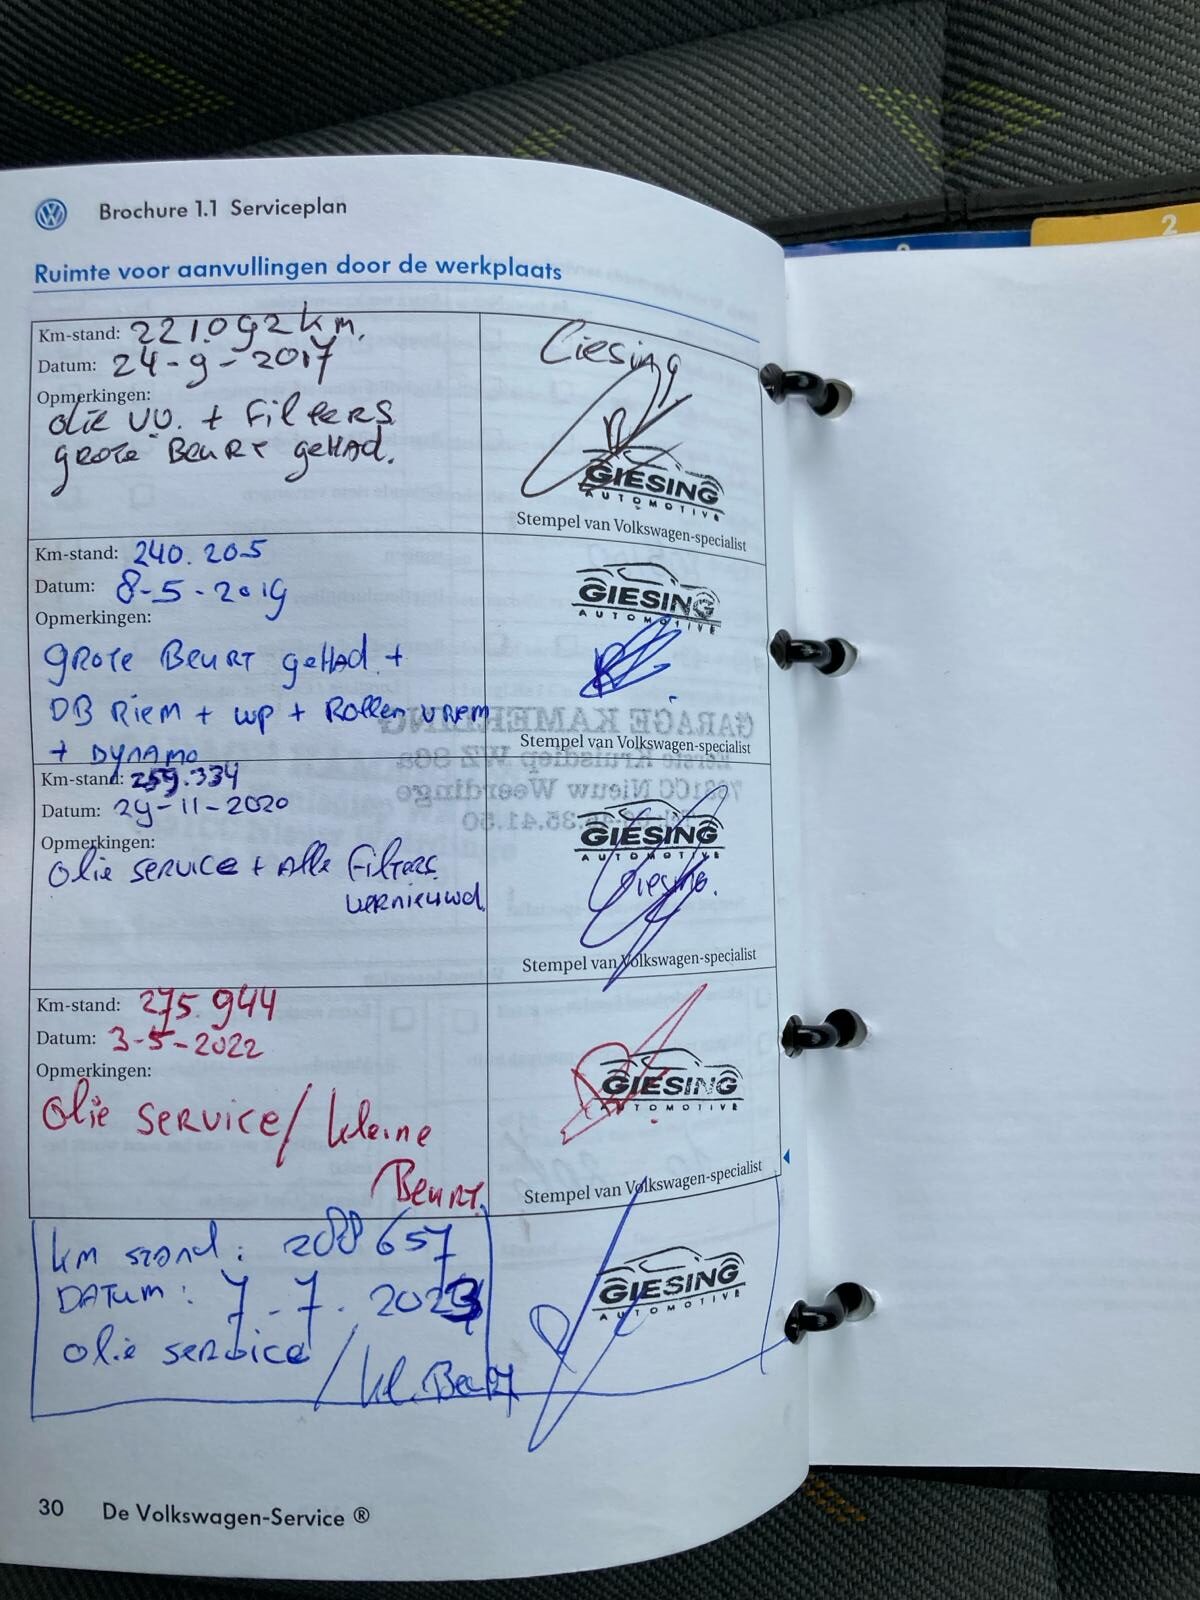 2
Brochure 1.1 Serviceplan
Ruimte voor aanvullingen door de werkplaats
Km-stand: 221.092 km.
Datum: 24-9-2017
Opmerkingen:
olie vv. + Filters
grote Beurt gehad.
Giesing
GIESING
AUTOMOTIVE
Stempel van Volkswagen-specialist
Km-stand: 240.205
Datum: 8-5-2019
Opmerkingen:
grote Beurt gehad +
DB Riem + wp + Rollen
+ Dynamo
GIESING
AUTOMOTIVE
Stempel van Volkswagen-specialist
Km-stand: 259.334
Datum: 29-11-2020
Opmerkingen:
olie service + Alle filters
vernieuwd.
GIESING
AUTOMOTIVE
Giesing.
Stempel van Volkswagen-specialist
Km-stand: 275.944
Datum: 3-5-2022
Opmerkingen:
Olie service / kleine
Beurt.
GIESING
AUTOMOTIVE
Stempel van Volkswagen-specialist
km stand: 288657
Datum: 7-7-2023
olie service
/ kl. Beurt
GIESING
AUTOMOTIVE
GARAGE KAMERLING
Eerste Kruisdiep WZ 86a
Nieuw Weerdinge
30 De Volkswagen-Service ®